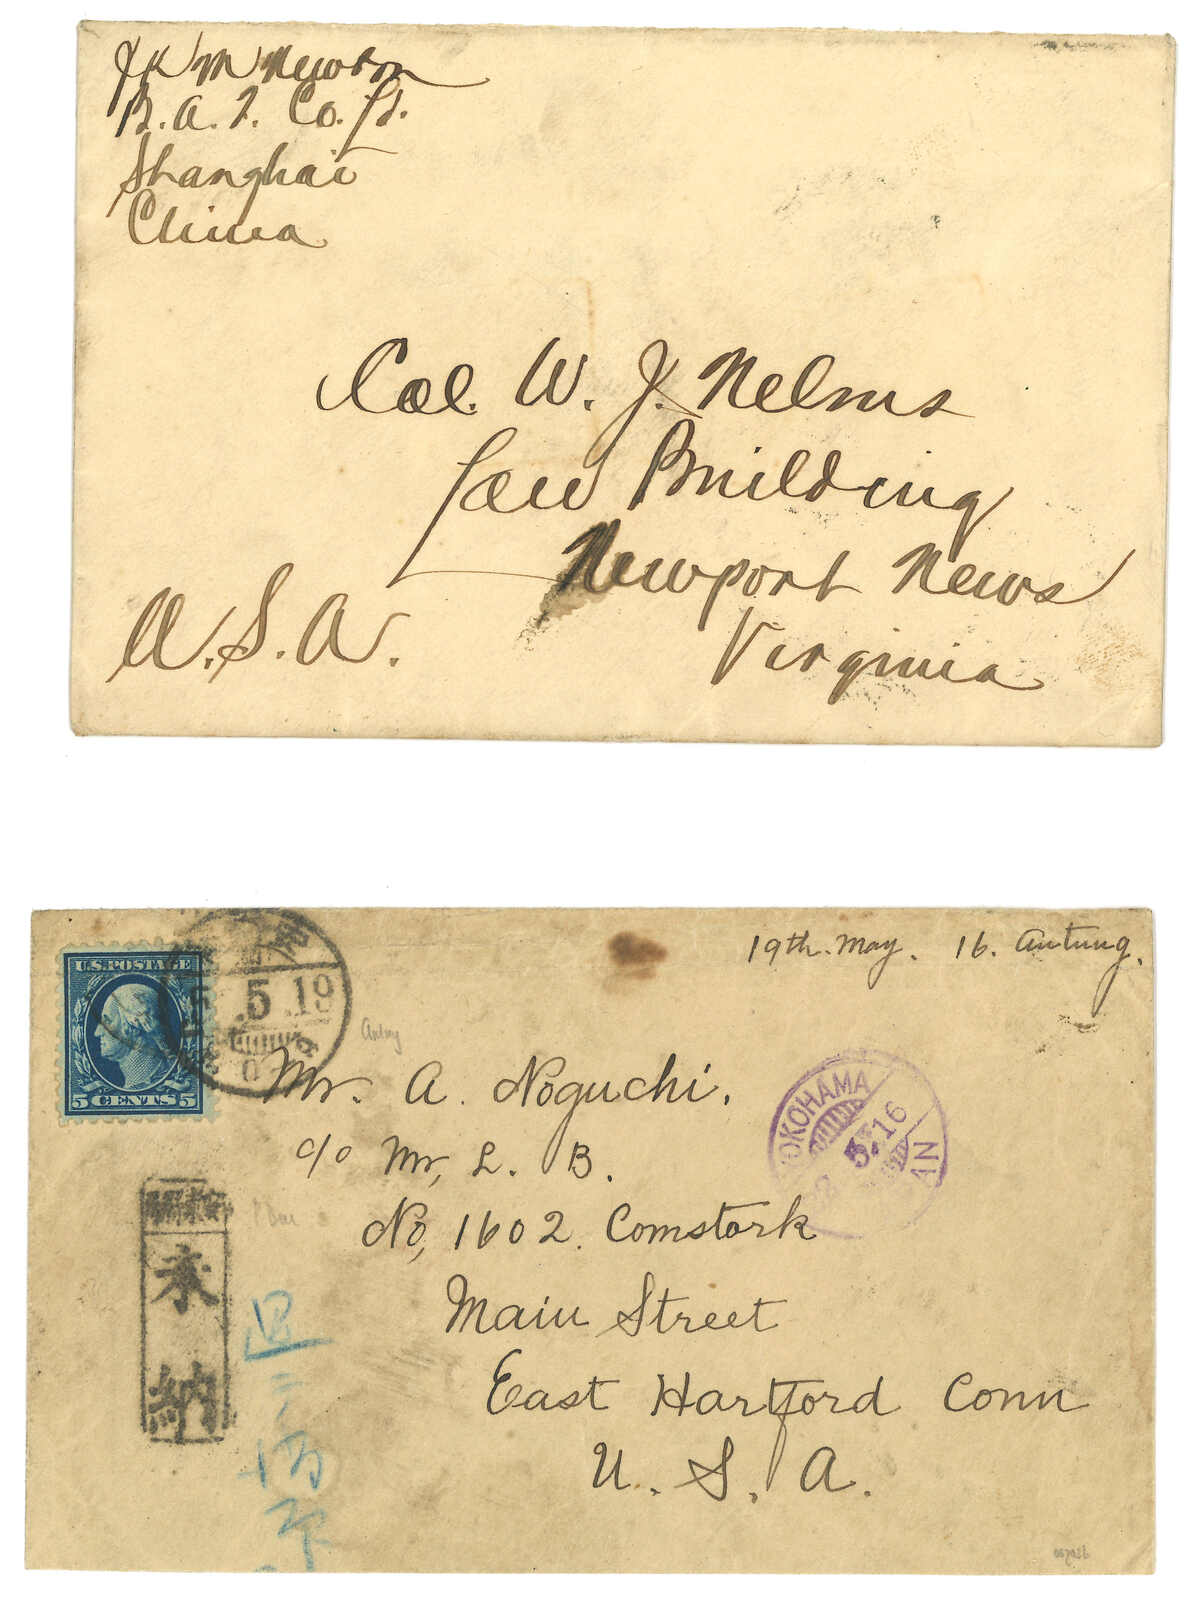 J K M Newton
B. A. T. Co. Ld.
Shanghai
China
Col. W. J. Nelms
Law Building
Newport News
Virginia
U. S. A.
19th. May. 16. Antung.
U.S. POSTAGE
5 CENTS 5
5 . 5 . 19
Antung
Mr. A. Noguchi.
c/o Mr, L. B.
No, 1602. Comstork
Main Street
East Hartford Conn
U. S. A.
YOKOHAMA
5. 16
未
納